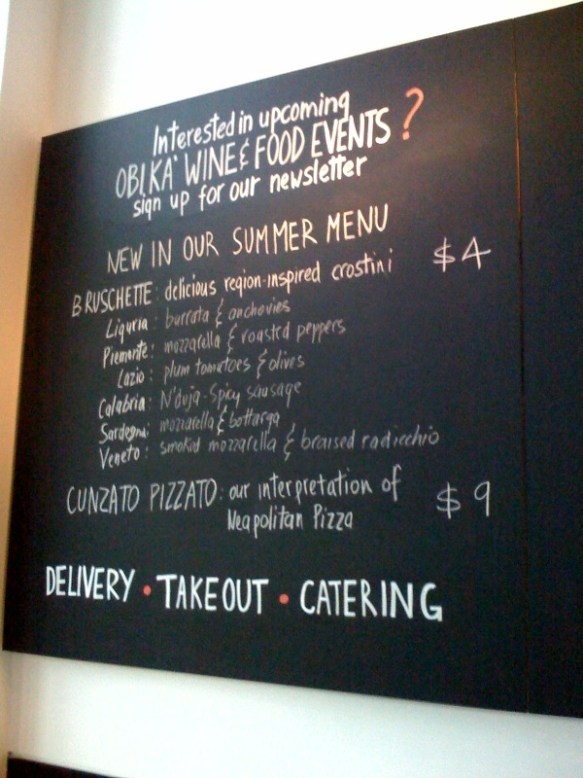 Interested in upcoming
OBI.KA' WINE & FOOD EVENTS ?
sign up for our newsletter
NEW IN OUR SUMMER MENU
BRUSCHETTE: delicious region-inspired crostini $4
Liguria: burrata & anchovies
Piemonte: mozzarella & roasted peppers
Lazio: plum tomatoes & olives
Calabria: N'duja-Spicy sausage
Sardegna: mozzarella & bottarga
Veneto: smoked mozzarella & braised radicchio
CUNZATO PIZZATO: our interpretation of $9
Neapolitan Pizza
DELIVERY • TAKEOUT • CATERING